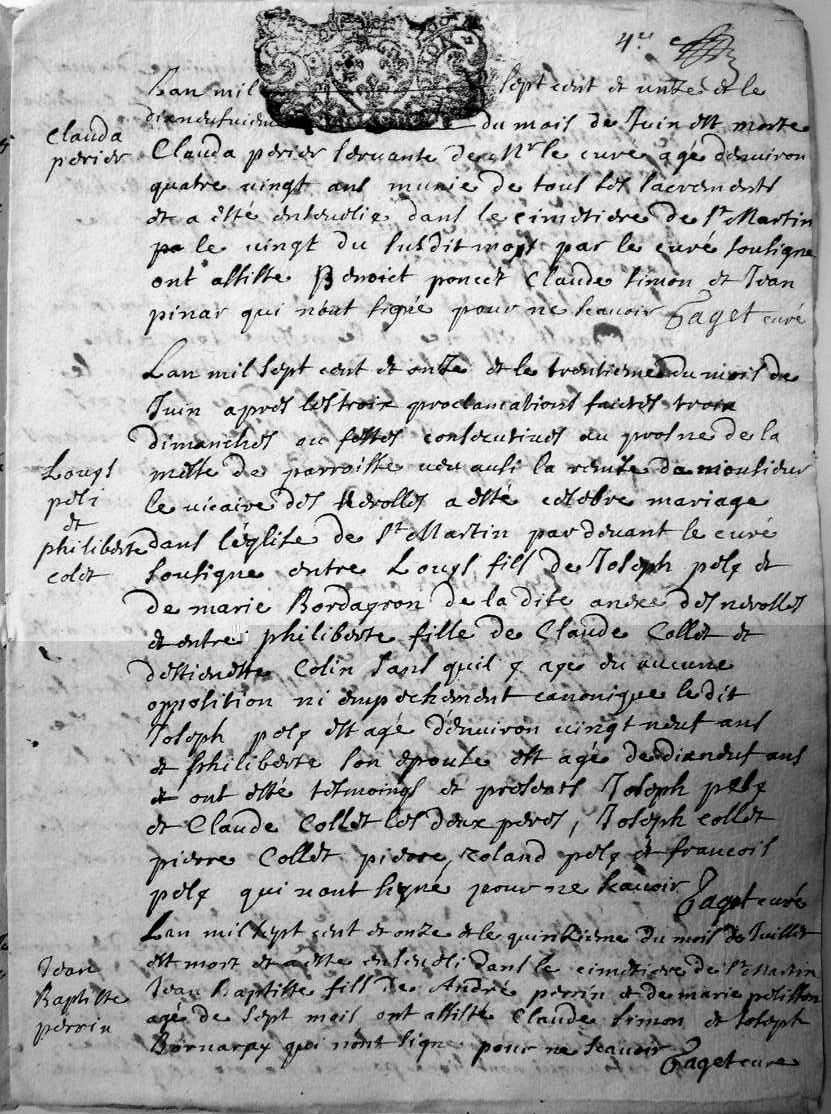 4e
Lan mil sept cent et unze et le
dianeufuieme du mais de Juin est morte
Clauda
perier
Clauda perier servante de Mr le curé agé d'environ
quatre vingt ans munie de tous ses sacrements
et a esté ensevelie dans le cimetiere de St Martin
le vingt du susdit moys par le curé sousigne
ont assiste Benoict poncet Claude simon et Jean
pinar qui n'ont signé pour ne scavoir Taget curé
Lan mil sept cent et onze et le trentieme du mois de
Juin apres les trois proclamations faictes trois
dimanches ou festes consecutives au prosne de la
Louys
pely
et
philiberte
colet
messe de parroisse veu ausi la remise de monsieur
le vicaire des Nerolles a esté celebre mariage
dans l'église de St Martin par devant le curé
sousigne entre Louys fils de Joseph pely et
de marie Bordagron de la dite anexe des nerolles
et entre philiberte fille de Claude Collet et
d'estienette Colin sans quil y aye eu aucune
opposition ni empechement canonique le dit
Joseph pely est agé d'environ vingt neuf ans
et philiberte son epouse est agé de dianeuf ans
et ont esté tesmoings et presents Joseph pely
et Claude Collet les deux peres, Joseph collet
pierre Collet pierre, roland pely et francois
pely qui n'ont signé pour ne scavoir Taget curé
Lan mil sept cent et onze et le quinzieme du mois de Juillet
est mort et a esté enseveli dans le cimetiere de St Martin
Jean
Baptiste
perrin
Jean Baptiste fils de André perrin et de marie petitton
agé de sept mais ont assisté Claude simon et Joseph
Bornaray qui n'ont signe pour ne scavoir Taget cure